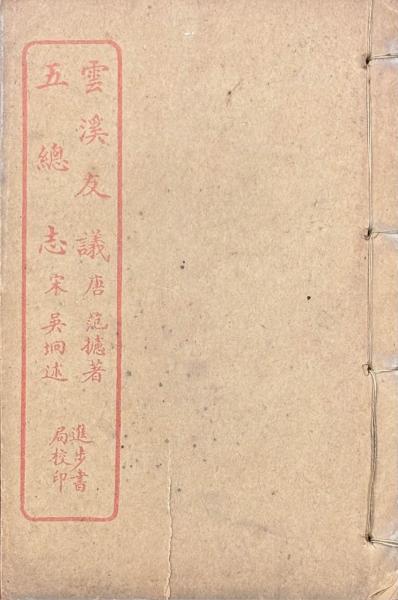 雲溪友議唐范摅著
五總志宋吳坰述
進步書
局校印